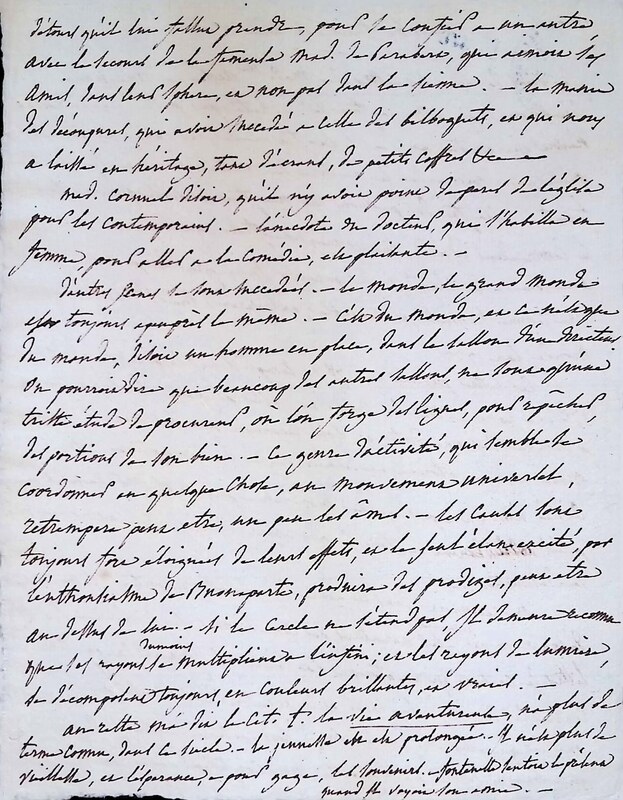 détours qu'il lui fallut prendre, pour se confier à un autre
avec le secours de la fameuse Mad. de Parabere, qui aimoit ses
amis, dans leur sphere, et non pas dans la sienne. - la manie
des découpures, qui avoit succedé à celle des bilboquets, et qui nous
a laissé en héritage, tant d'écrans, de petits coffres &c
Mad. Cornuel disoit, qu'il n'y avoit point de peres de l'église
pour les contemporains. - l'anecdote du docteur, qui s'habilla en
femme, pour aller à la comédie, est plaisante. -
d'autres scenes se sont succedées. - le monde, le grand monde
est toujours à peu près le même. - C'est du monde, et ce n'est que
du monde, disoit un homme en place, dans le sallon d'un directeur
On pourroit dire que beaucoup des autres sallons, ne sont qu'une
triste étude de procureur, où l'on forge des lignes, pour repêcher,
des portions de son bien. - Ce genre d'activité, qui semble se
coordonner en quelque chose, au mouvement universel,
retrempera peut etre, un peu les âmes. - les causes sont
toujours fort éloignées de leurs effets, et le seul élan excité, par
l'enthousiasme de Buonaparte, produira des prodiges, peut etre
au dessus de lui. - si le cercle ne s'étend pas, il demeure reconnu
que ses rayons se multiplient à l'infini; et les rayons de lumiere,
se décomposent toujours, en couleurs brillantes, et vraies. -
au reste m'a dit le Cit. T. la vie aventureuse, n'a plus de
terme connu, dans ce siecle. - la jeunesse est prolongée. Il n'est plus de
vieillesse, et l'espérance, a pour gage, les souvenirs. - fontenelle
quand il voyoit son amie. -